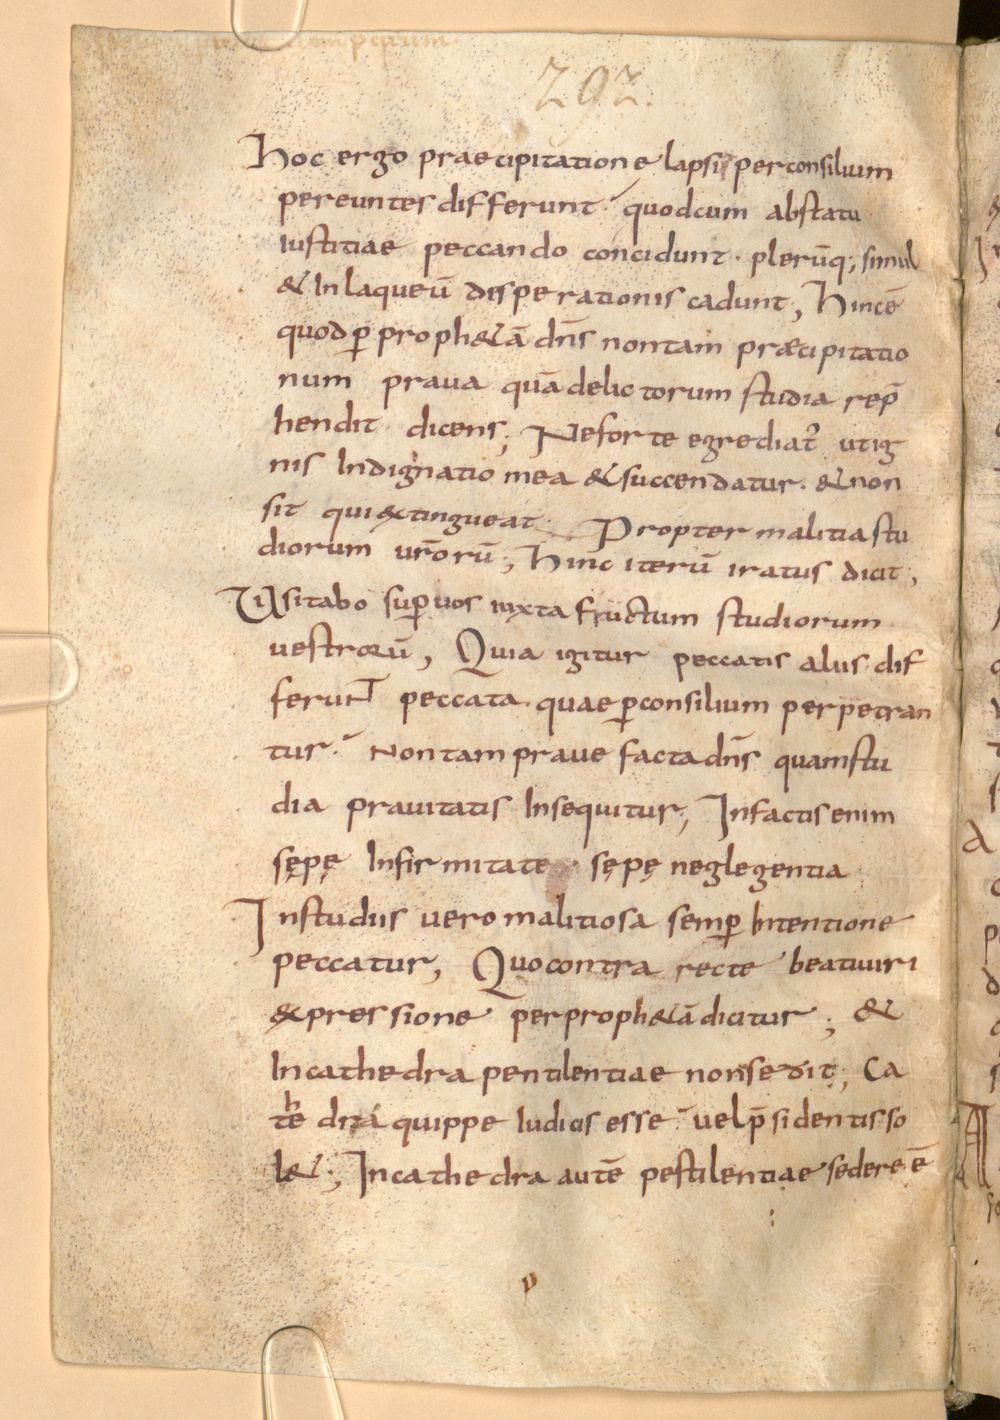 292.
Hoc ergo praecipitatione lapsi perconsilium
pereuntes differunt quodcum abstatu
iustitiae peccando concidunt · plerūq; simul
& Inlaqueū disperationis cadunt; Hincē
quod ꝑ proph&ā dn̄s nontam præcipitatio
num praua quā delictorum studia rep̄
hendit dicens; Neforte egrediat᷒ utig
nis Indignatio mea & succendatur · & non
sit qui extingueat Propter malitia stu
diorum ur̄orū; Hinc iterū iratus dicit;
Uisitabo suꝑ uos iuxta fructum studiorum
uestrorū; Quia igitur peccatis aliis dif
ferunt peccata · quae ꝑconsilium perpetran
tur · Nontam praue facta dn̄s quamstu
dia prauitatis Insequitur; Infactis enim
sępę Infirmitate · sępę neglegentia
Instudiis uero malitiosa semꝑ Intentione
peccatur; Quocontra recte beatiuiri
expressione perproph&ā dicitur; &
Incathedra pentilentiae nonsedit; Ca
thedra quippe Iudicis esse uelp̄sidentis so
l&; Incathedra autē pestilentiae sedere ē